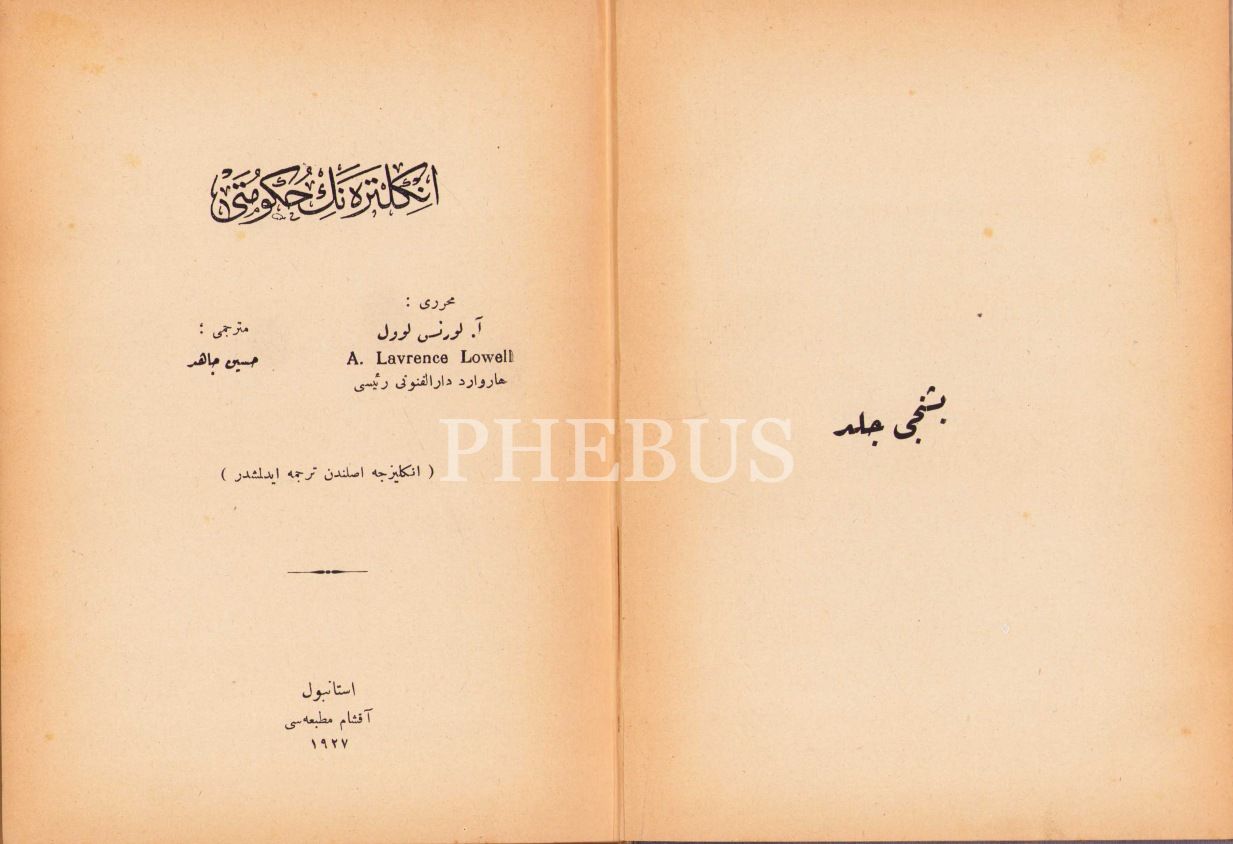 بشنجی جلد
انكلتره نك حكومتی
محرری :
آ. لورنس لوول
A. Lavrence Lowell
هاروارد دارالفنونی رئیسی
مترجمی :
حسین جاهد
( انكلیزجه اصلندن ترجمه ایدلمشدر )
استانبول
آقشام مطبعه‌سی
١٩٢٧
PHEBUS